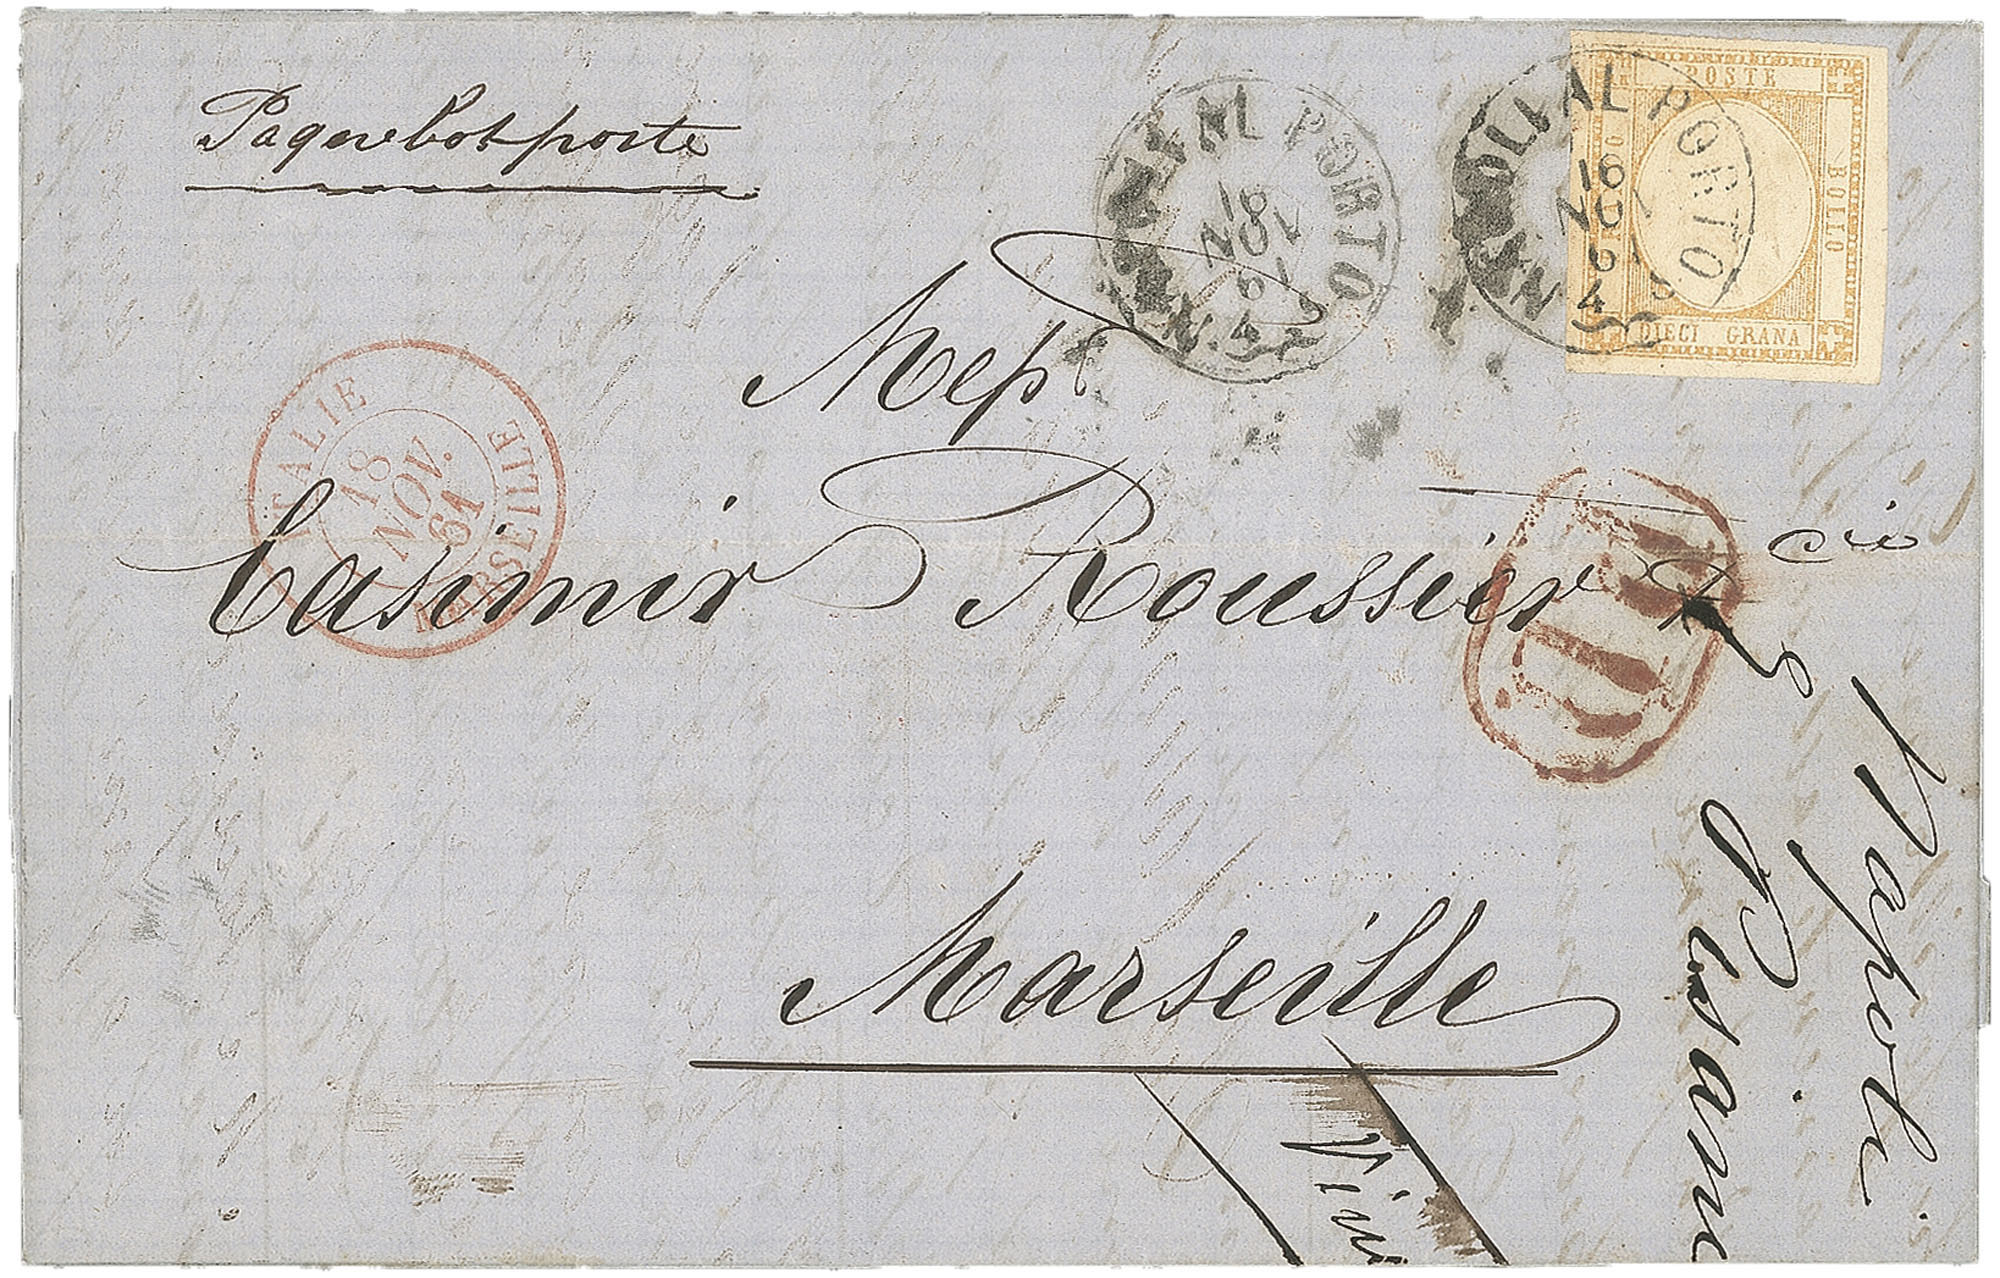 Paquebot poste
NAPOLI AL PORTO
16
NOV
61
4 S
NAPOLI AL PORTO
16
NOV
61
4 S
POSTE
BOLLO
DIECI GRANA
ITALIE
18
NOV.
61
MARSEILLE
PD
Casimir Roussier & Cie
Marseille
Napoli
Pisani